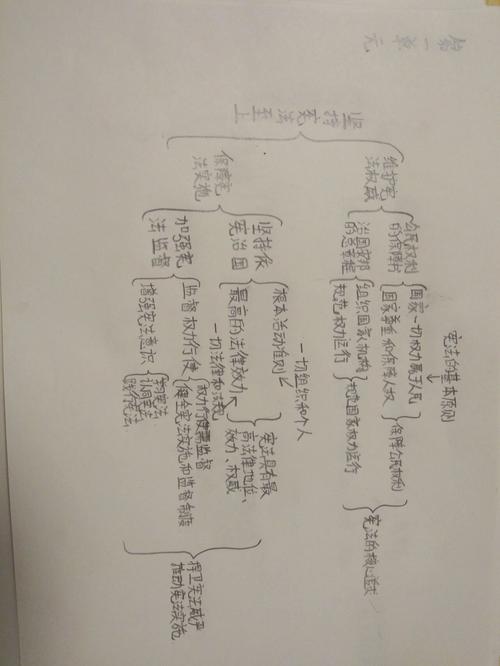 第一单元
坚持宪法至上
维护宪
法权威
公民权利
的保障书
国家一切权力属于人民
国家尊重和保障人权
宪法的基本原则
保障公民权利
治国安邦
的总章程
组织国家机构
规范权力运行
规范国家权力运行
宪法的核心
保障宪
法实施
坚持依
宪治国
根本活动准则
一切组织和个人
最高的法律效力
一切法律和法规
宪法具有最
高法律地位、
效力、权威
加强宪
法监督
监督权力行使
权力行使需监督
健全宪法实施和监督制度
增强宪法意识
学习宪法
认同宪法
践行宪法
捍卫宪法威严
推动宪法实施